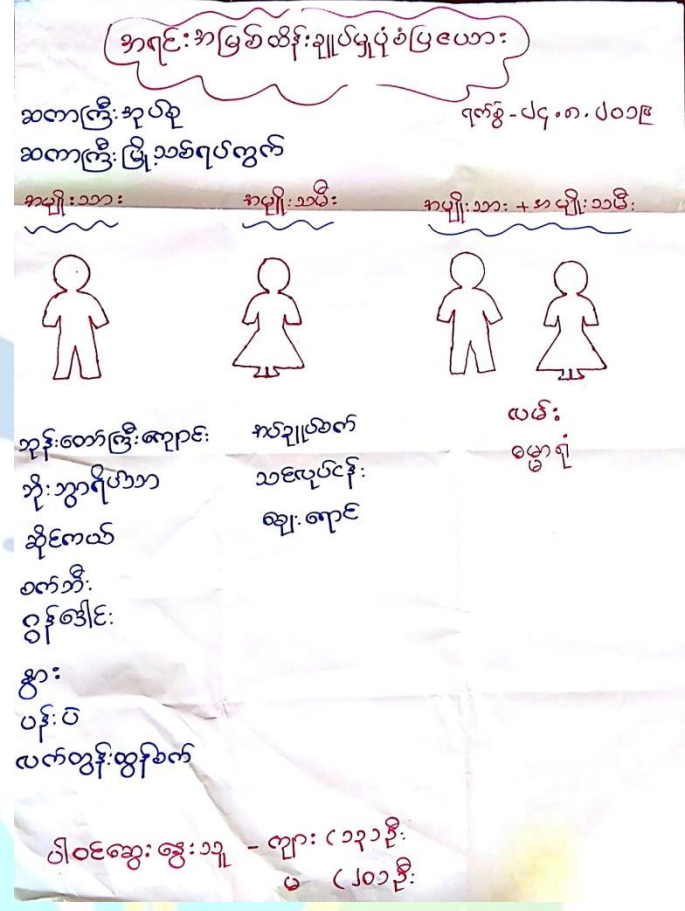 အရင်းအမြစ်ထိန်းချုပ်မှုပုံစံပြဇယား
ဆကာကြီးအုပ်စု
ရက်စွဲ-၂၄.၈.၂၀၁၉
ဆကာကြီးမြို့သစ်ရပ်ကွက်
အမျိုးသား
အမျိုးသမီး
အမျိုးသား + အမျိုးသမီး
ဘုန်းတော်ကြီးကျောင်း
ဘိုးဘွားရိပ်သာ
ဆိုင်ကယ်
စက်ဘီး
ဂွန်ဒေါင်း
နွား
ပန်းပဲ
လက်တွန်းထွန်စက်
အပ်ချုပ်စက်
သင်လုပ်ငန်း
ဈေးရောင်
လမ်း
ဓမ္မာရုံ
ပါဝင်ဆွေးနွေးသူ - ကျား (၁၃)ဦး
မ (၂၀)ဦး